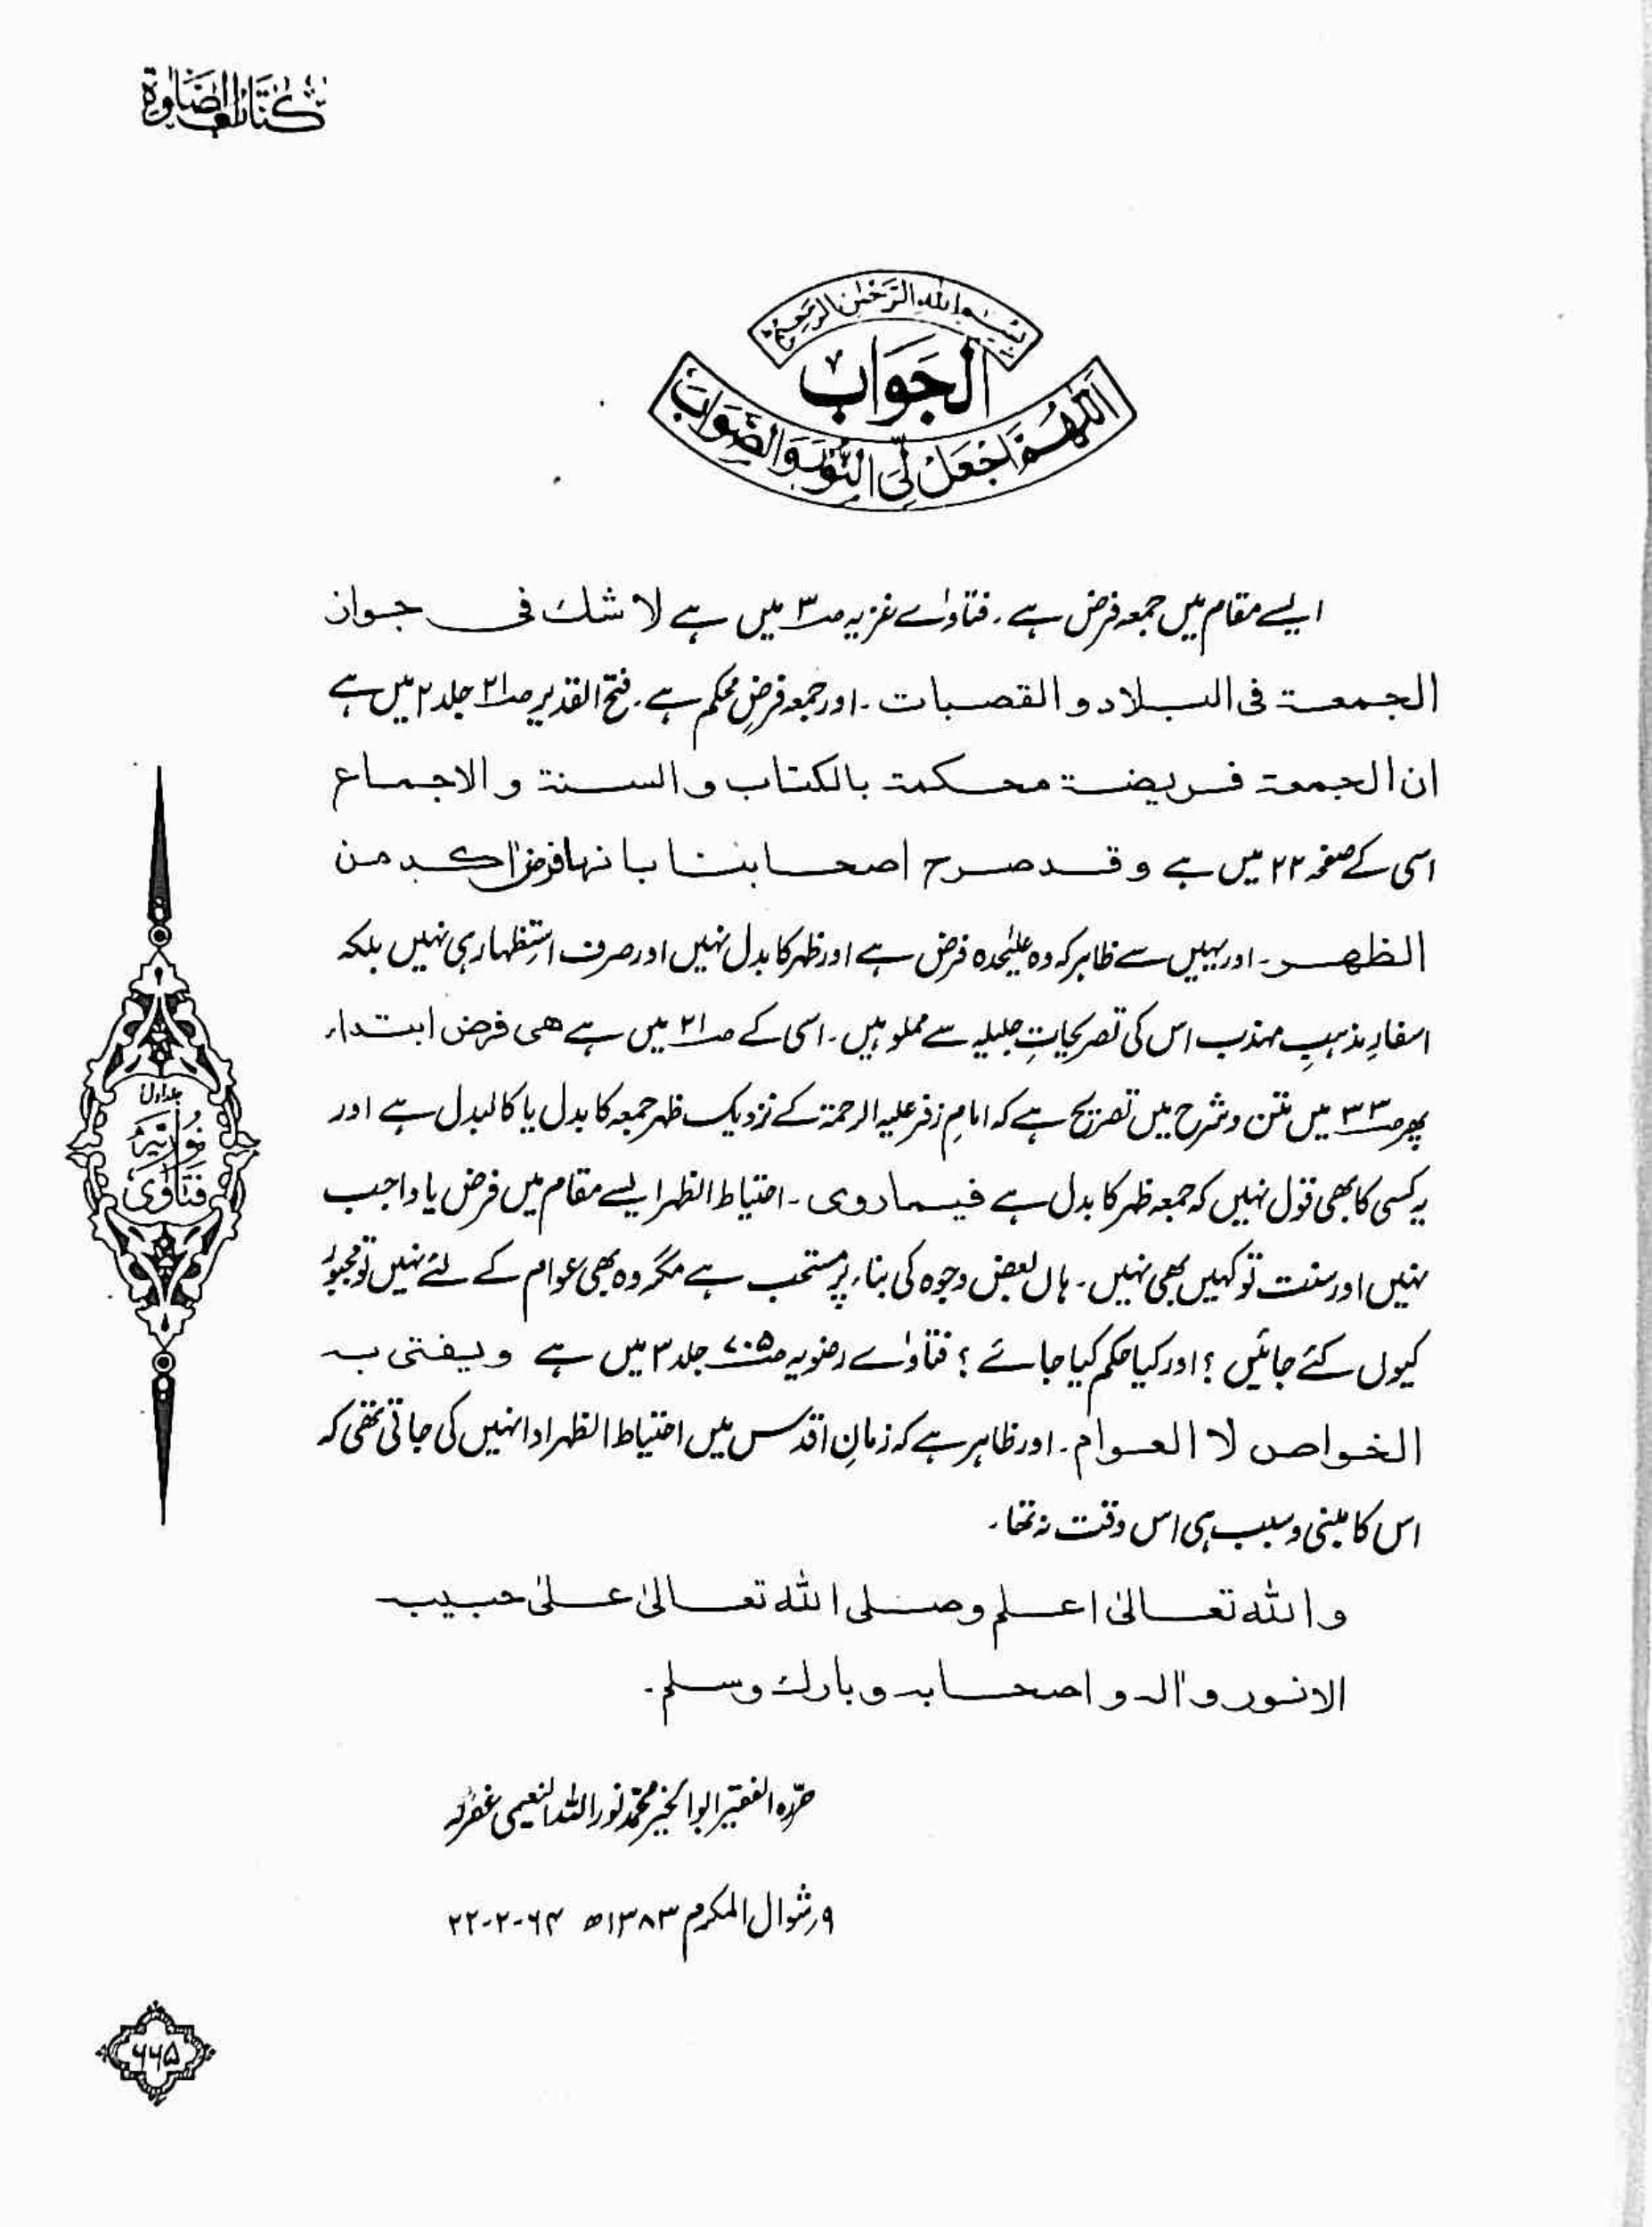 كتاب الصلوة
بسم الله الرحمن الرحيم
الجواب
اللهم اجعل لی النور والصواب
ایسے مقام میں جمعہ فرض ہے۔ فتاوٰے غزیہ صـ۳ میں ہے لا شك فی جواز
الجمعة فی البلاد و القصبات۔ اور جمعہ فرضِ محکم ہے۔ فتح القدیر صـ۲۱ جلد ۲ میں ہے
ان الجمعة فریضة محکمة بالکتاب و السنة و الاجماع
اسی کے صفحہ ۲۲ میں ہے وقد صرح اصحابنا بانها فرض اٰکد من
الظهر۔ اور یہیں سے ظاہر کہ وہ علیٰحدہ فرض ہے اور ظہر کا بدل نہیں اور صرف استظہار ہی نہیں بلکہ
اسفارِ مذہبِ مہذب اس کی تصریحاتِ جلیلہ سے مملو ہیں۔ اسی کے صـ۲۱ میں ہے هی فرض ابتداء
پھر صـ۳۳ میں متن و شرح میں تصریح ہے کہ امام زفر علیہ الرحمۃ کے نزدیک ظہر جمعہ کا بدل یا کالبدل ہے اور
یہ کسی کا بھی قول نہیں کہ جمعہ ظہر کا بدل ہے فیما روی۔ احتیاط الظہر ایسے مقام میں فرض یا واجب
نہیں اور سنت تو کہیں بھی نہیں۔ ہاں بعض وجوہ کی بناء پر مستحب ہے مگر وہ بھی عوام کے لئے نہیں تو مجبور
کیوں کئے جائیں؟ اور کیا حکم کیا جائے؟ فتاوٰے رضویہ صـ۷۰۵ جلد ۳ میں ہے ویفتی به
الخواص لا العوام۔ اور ظاہر ہے کہ زمانِ اقدس میں احتیاط الظہر ادا نہیں کی جاتی تھی کہ
اس کا مبنی و سبب ہی اس وقت نہ تھا۔
والله تعالیٰ اعلم وصلی الله تعالیٰ علیٰ حبیبه
الانور و اٰله و اصحابه و بارك وسلم۔
حرّرہ الفقیر ابو الخیر محمّد نور اللہ النعیمی غفرلہ
۹ر شوال المکرم ۱۳۸۳ھ ۲۲-۲-۶۴
جلد اول
فتاوی نوریہ
۶۶۵